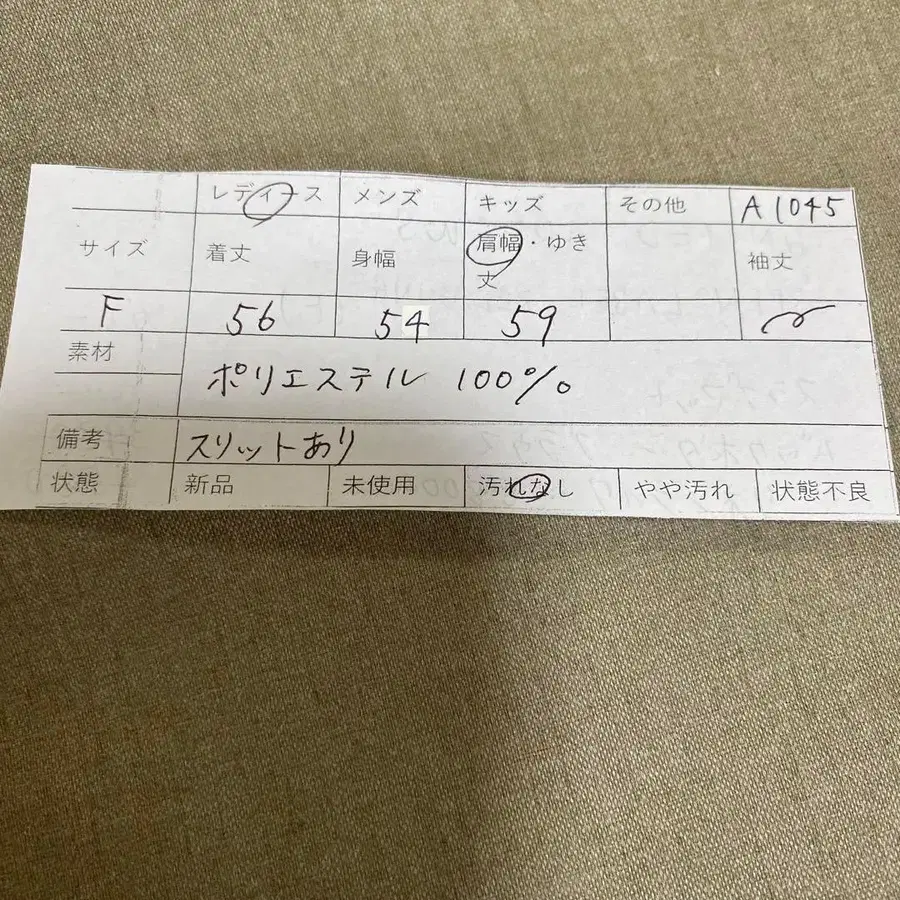 レディース メンズ キッズ その他 A1045
サイズ 着丈 身幅 肩幅・ゆき丈 袖丈
F 56 54 59
素材 ポリエステル 100%
備考 スリットあり
状態 新品 未使用 汚れなし やや汚れ 状態不良